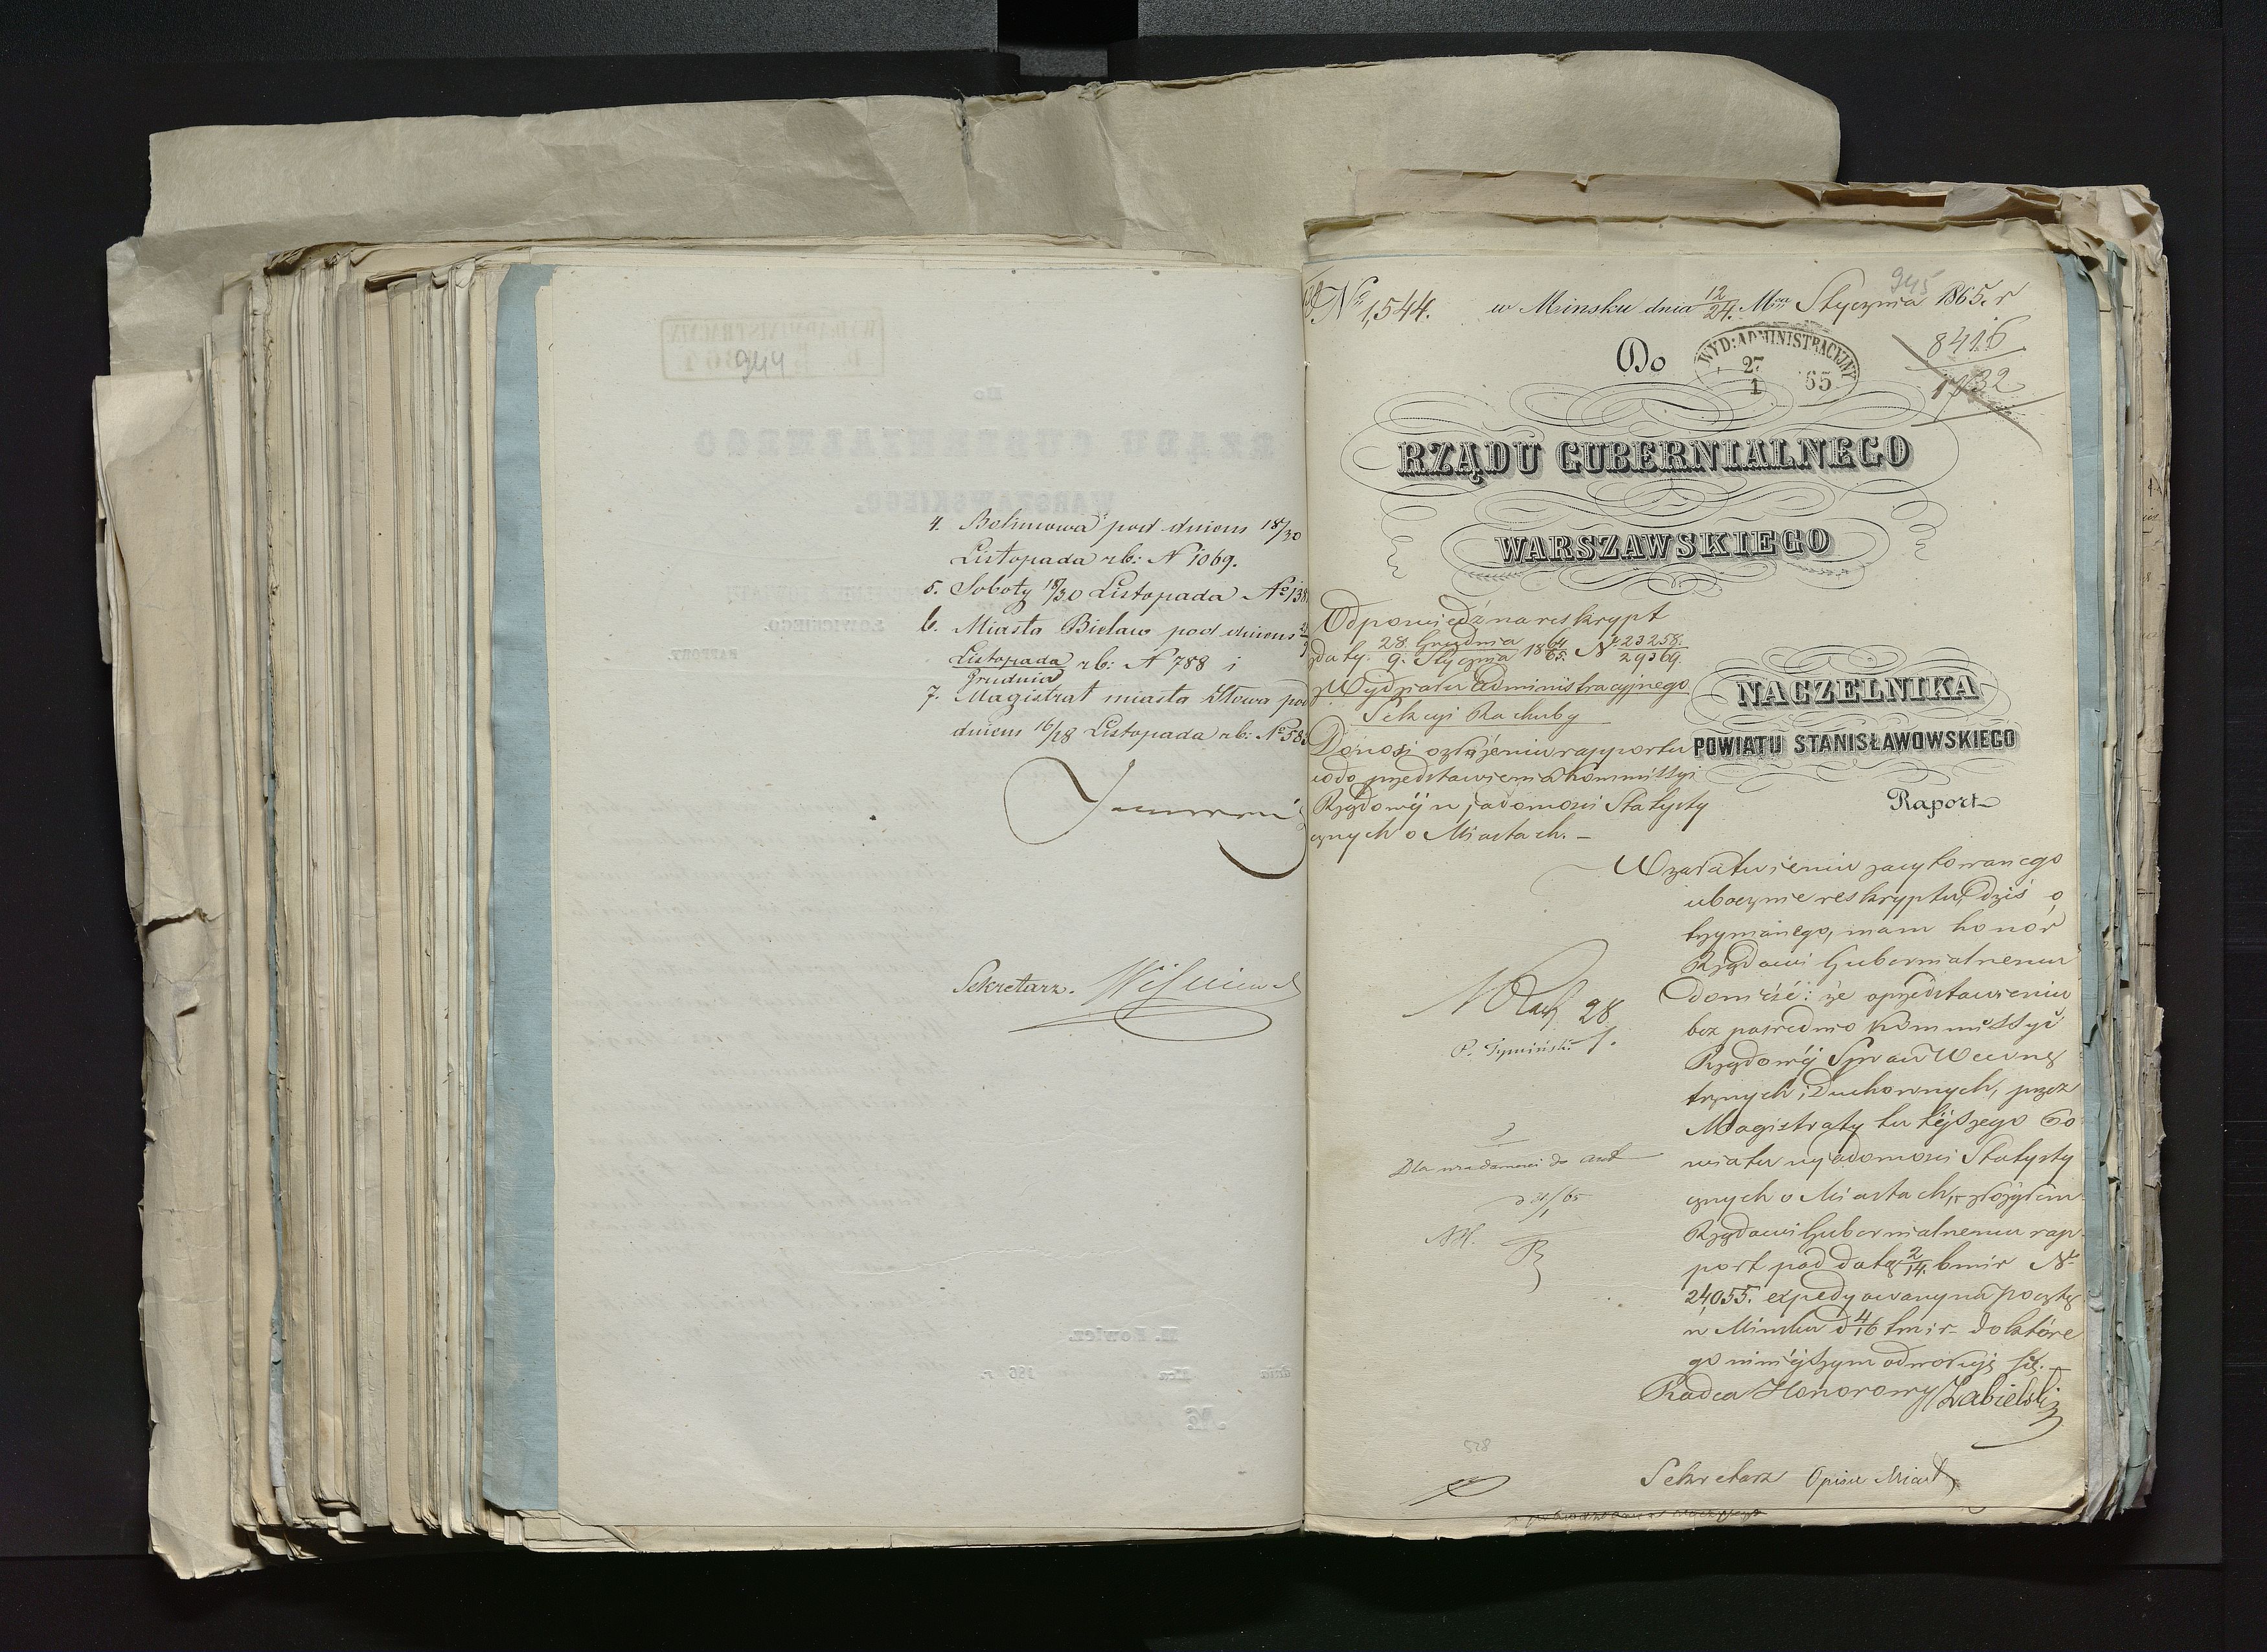 944
4. Bolimowa pod dniem 18/30
Listopada rb: N 1069.
5. Soboty 18/30 Listopada No 138
6. Miasta Bielaw pod dniem
Listopada
Grudnia rb: N 788 i
7. Magistrat miasta Iłowa pod
dniem 16/28 Listopada rb: No 585
Sekretarz.
No 1,544. w Minsku dnia 12/24. Mca Stycznia 1865. r
945
8416
1732
Do
WYD: ADMINISTRACYJNY
27
1 65
RZĄDU GUBERNIALNEGO
WARSZAWSKIEGO
Odpowiedź na reskrypt
z daty. 28. Grudnia / 9. Stycznia 1864/65. No 23258. / 29369.
z Wydziału Administracyjnego
Sekcyi Rachuby
Donosi o złożeniu rapportu
co do przedstawienia Kommissyi
Rządowéj wiadomości Statysty
cznych o Miastach. –
NACZELNIKA
POWIATU STANISŁAWOWSKIEGO
Raport
W załatwieniu zacytowanego
ubocznie reskryptu, dziś o
trzymanego, mam honor
Rządowi Gubernialnemu
donieść: że o przedstawieniu
bezpośrednio Kommissyi
Rządowéj Spraw Wewnę
trznych i Duchownych, przez
Magistraty tutéjszego Po
wiatu wiadomości Statysty
cznych o Miastach, złożyłem
Rządowi Gubernialnemu rap
port pod datą 2/14. bmir No
24,055. expedyowany na pocztę
w Minsku d 4/16 tmir do które
go niniéjszym odwołuję się. –
Radca Honorowy Zabielski
28
1.
P. Tymiński
Dla wiadomości do akt
d 31/1 65
528
Sekretarz
Opisu Miast